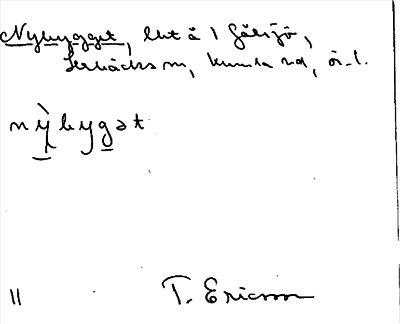 Nybygget, lht å 1 Gålsjö,
Lerbäcks sn, Kumla hd, ör. l.
nỳbygət
11 T. Ericsson